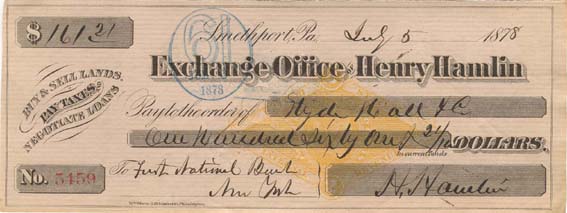 $ 161 21
Smethport, Pa. July 5 1878
61
1878
Exchange Office of Henry Hamlin
BUY & SELL LANDS,
PAY TAXES,
NEGOTIATE LOANS
Pay to the order of Hyde & Co
One Hundred Sixty One & 21/100 DOLLARS,
In current funds
To First National Bank
New York
No. 5459
H. Hamlin